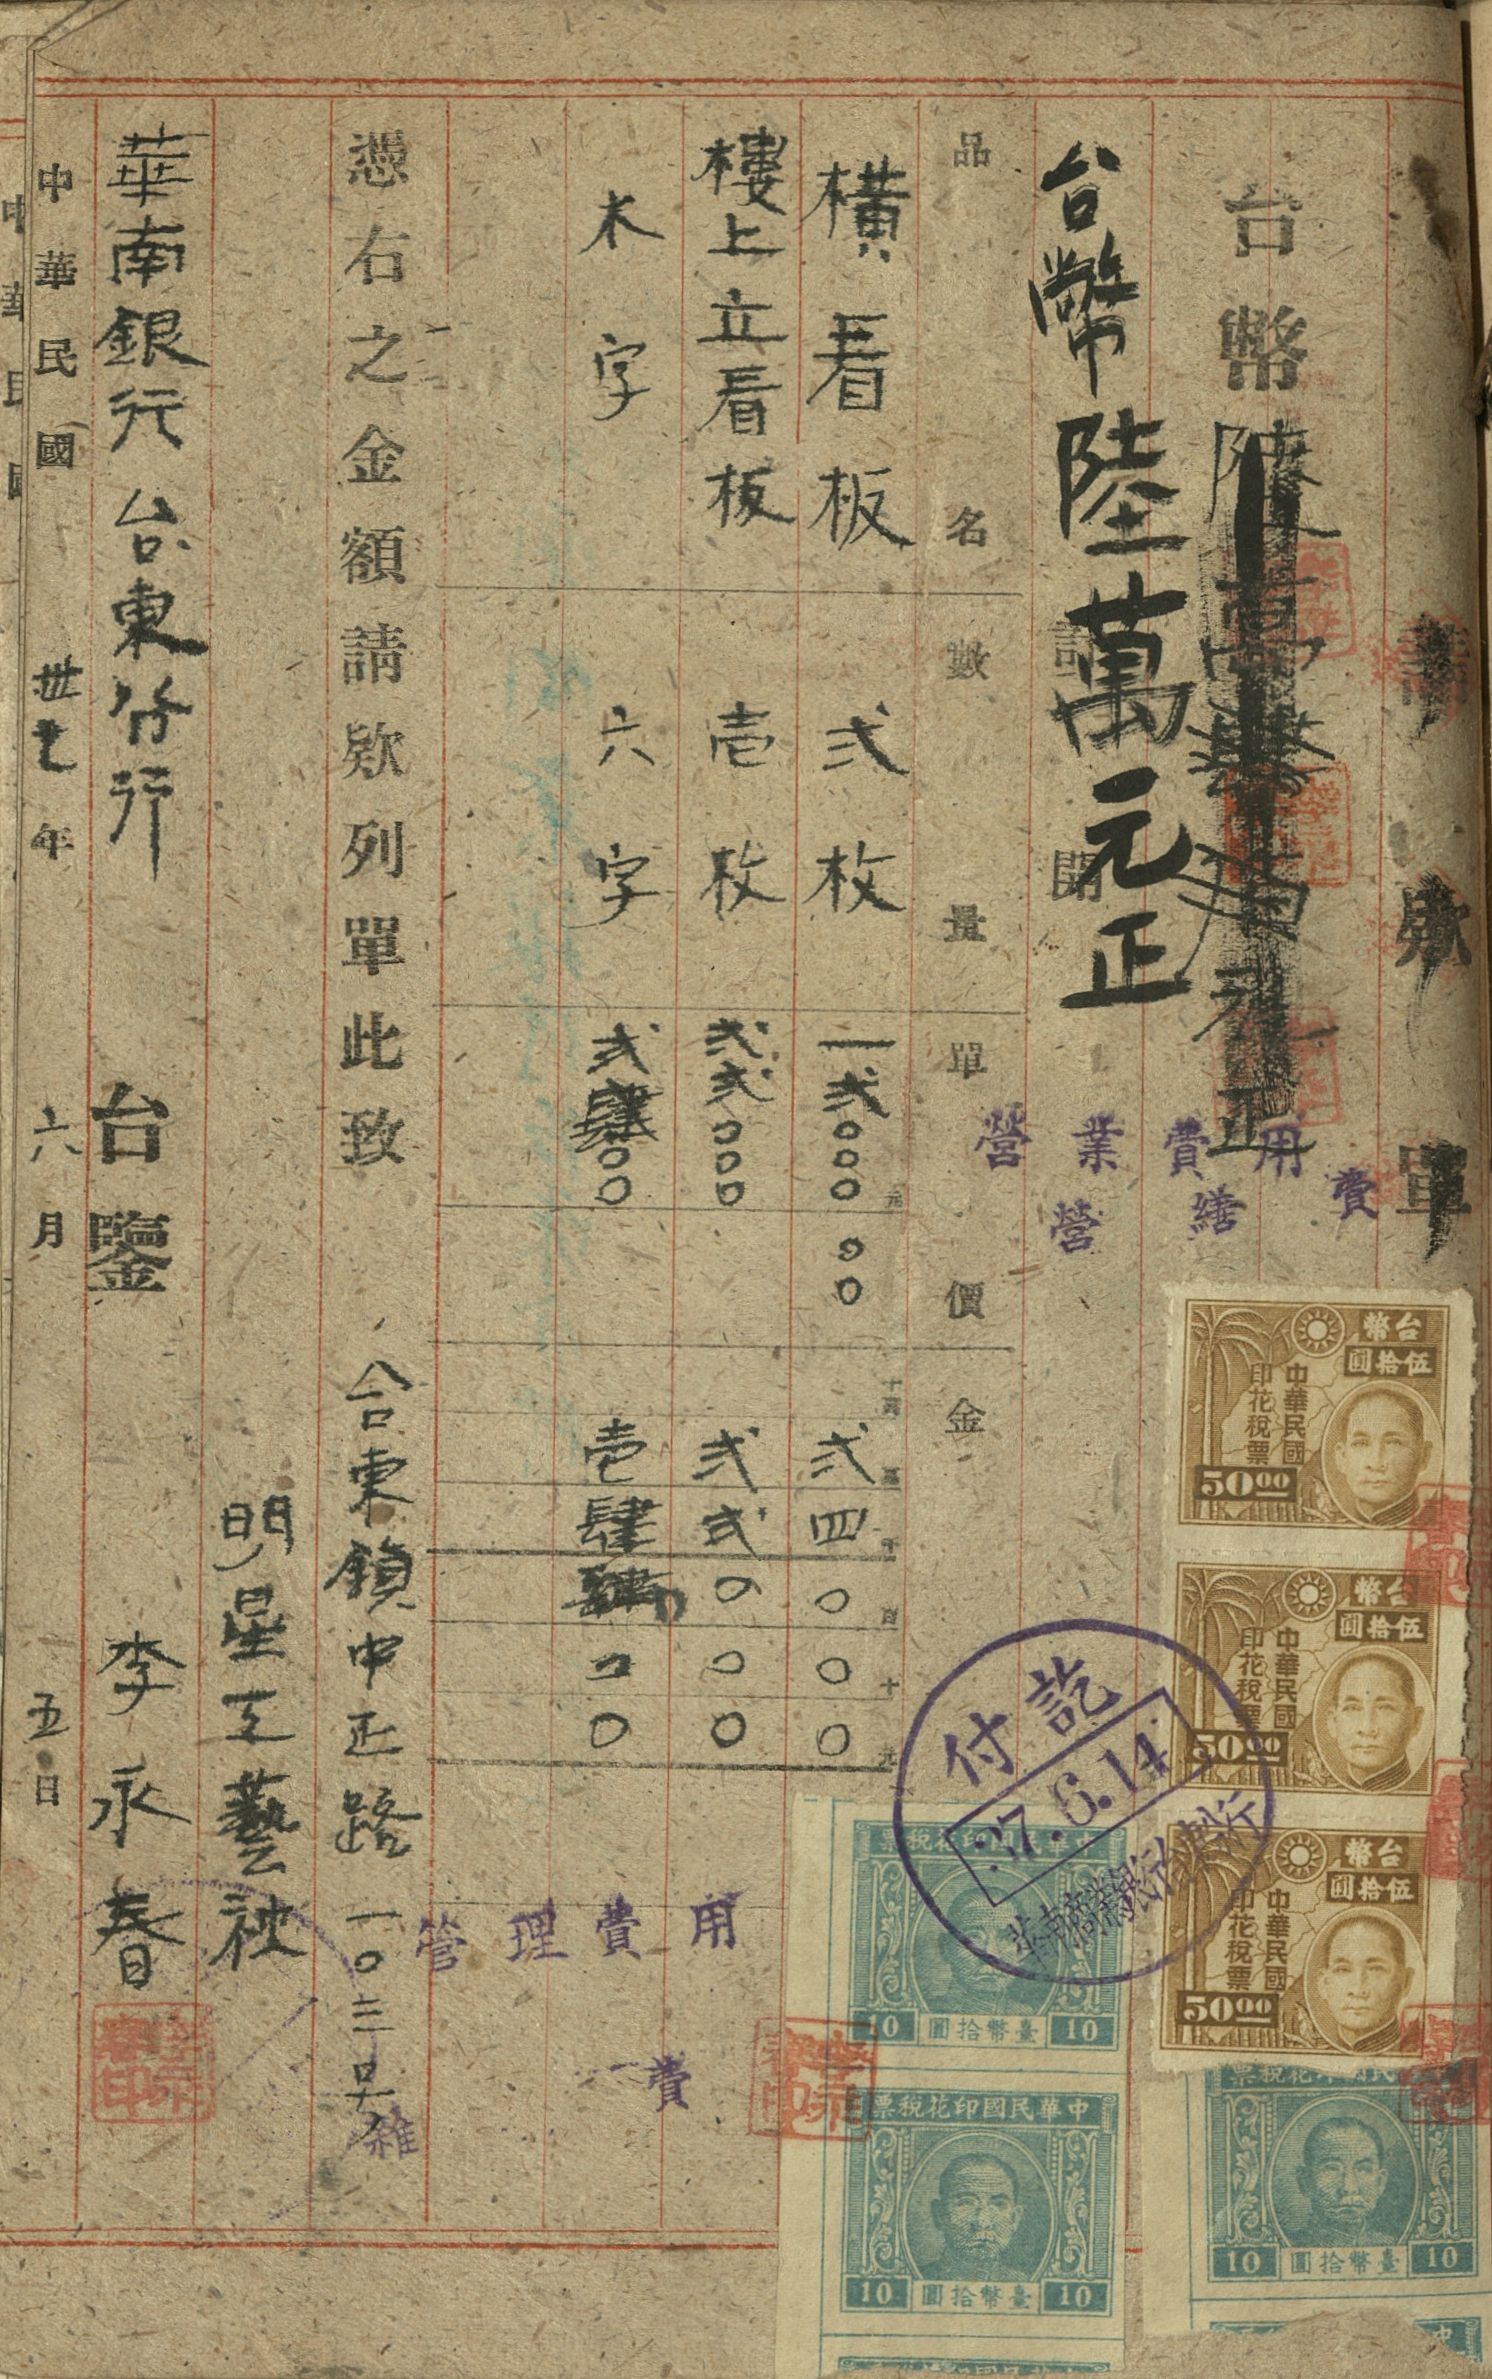 請款單
台幣
台幣陸萬元正
計開
品名 數量 單價 金
元 十萬 萬 千 百 十 元
橫看板 弍枚 一弍000 00 弍四000
樓上立看板 壱枚 弍弍000 弍弍000
木字 六字 弍肆00 壱肆 00
憑右之金額請欵列單此致
台東鎮中正路一0三号
明星工藝社
華南銀行台東分行 台鑒 李永春
中華民國卅七年六月五日
營業費用
營繕費
管理費用
雜費
付訖
37.6.14
台幣
伍拾圓
中華民國
印花稅票
50.00
台幣
伍拾圓
中華民國
印花稅票
50.00
台幣
伍拾圓
中華民國
印花稅票
50.00
中華民國印花稅票
10 臺幣拾圓 10
中華民國印花稅票
10 臺幣拾圓 10
民國印花稅票
10 臺幣拾圓 10
中華民國